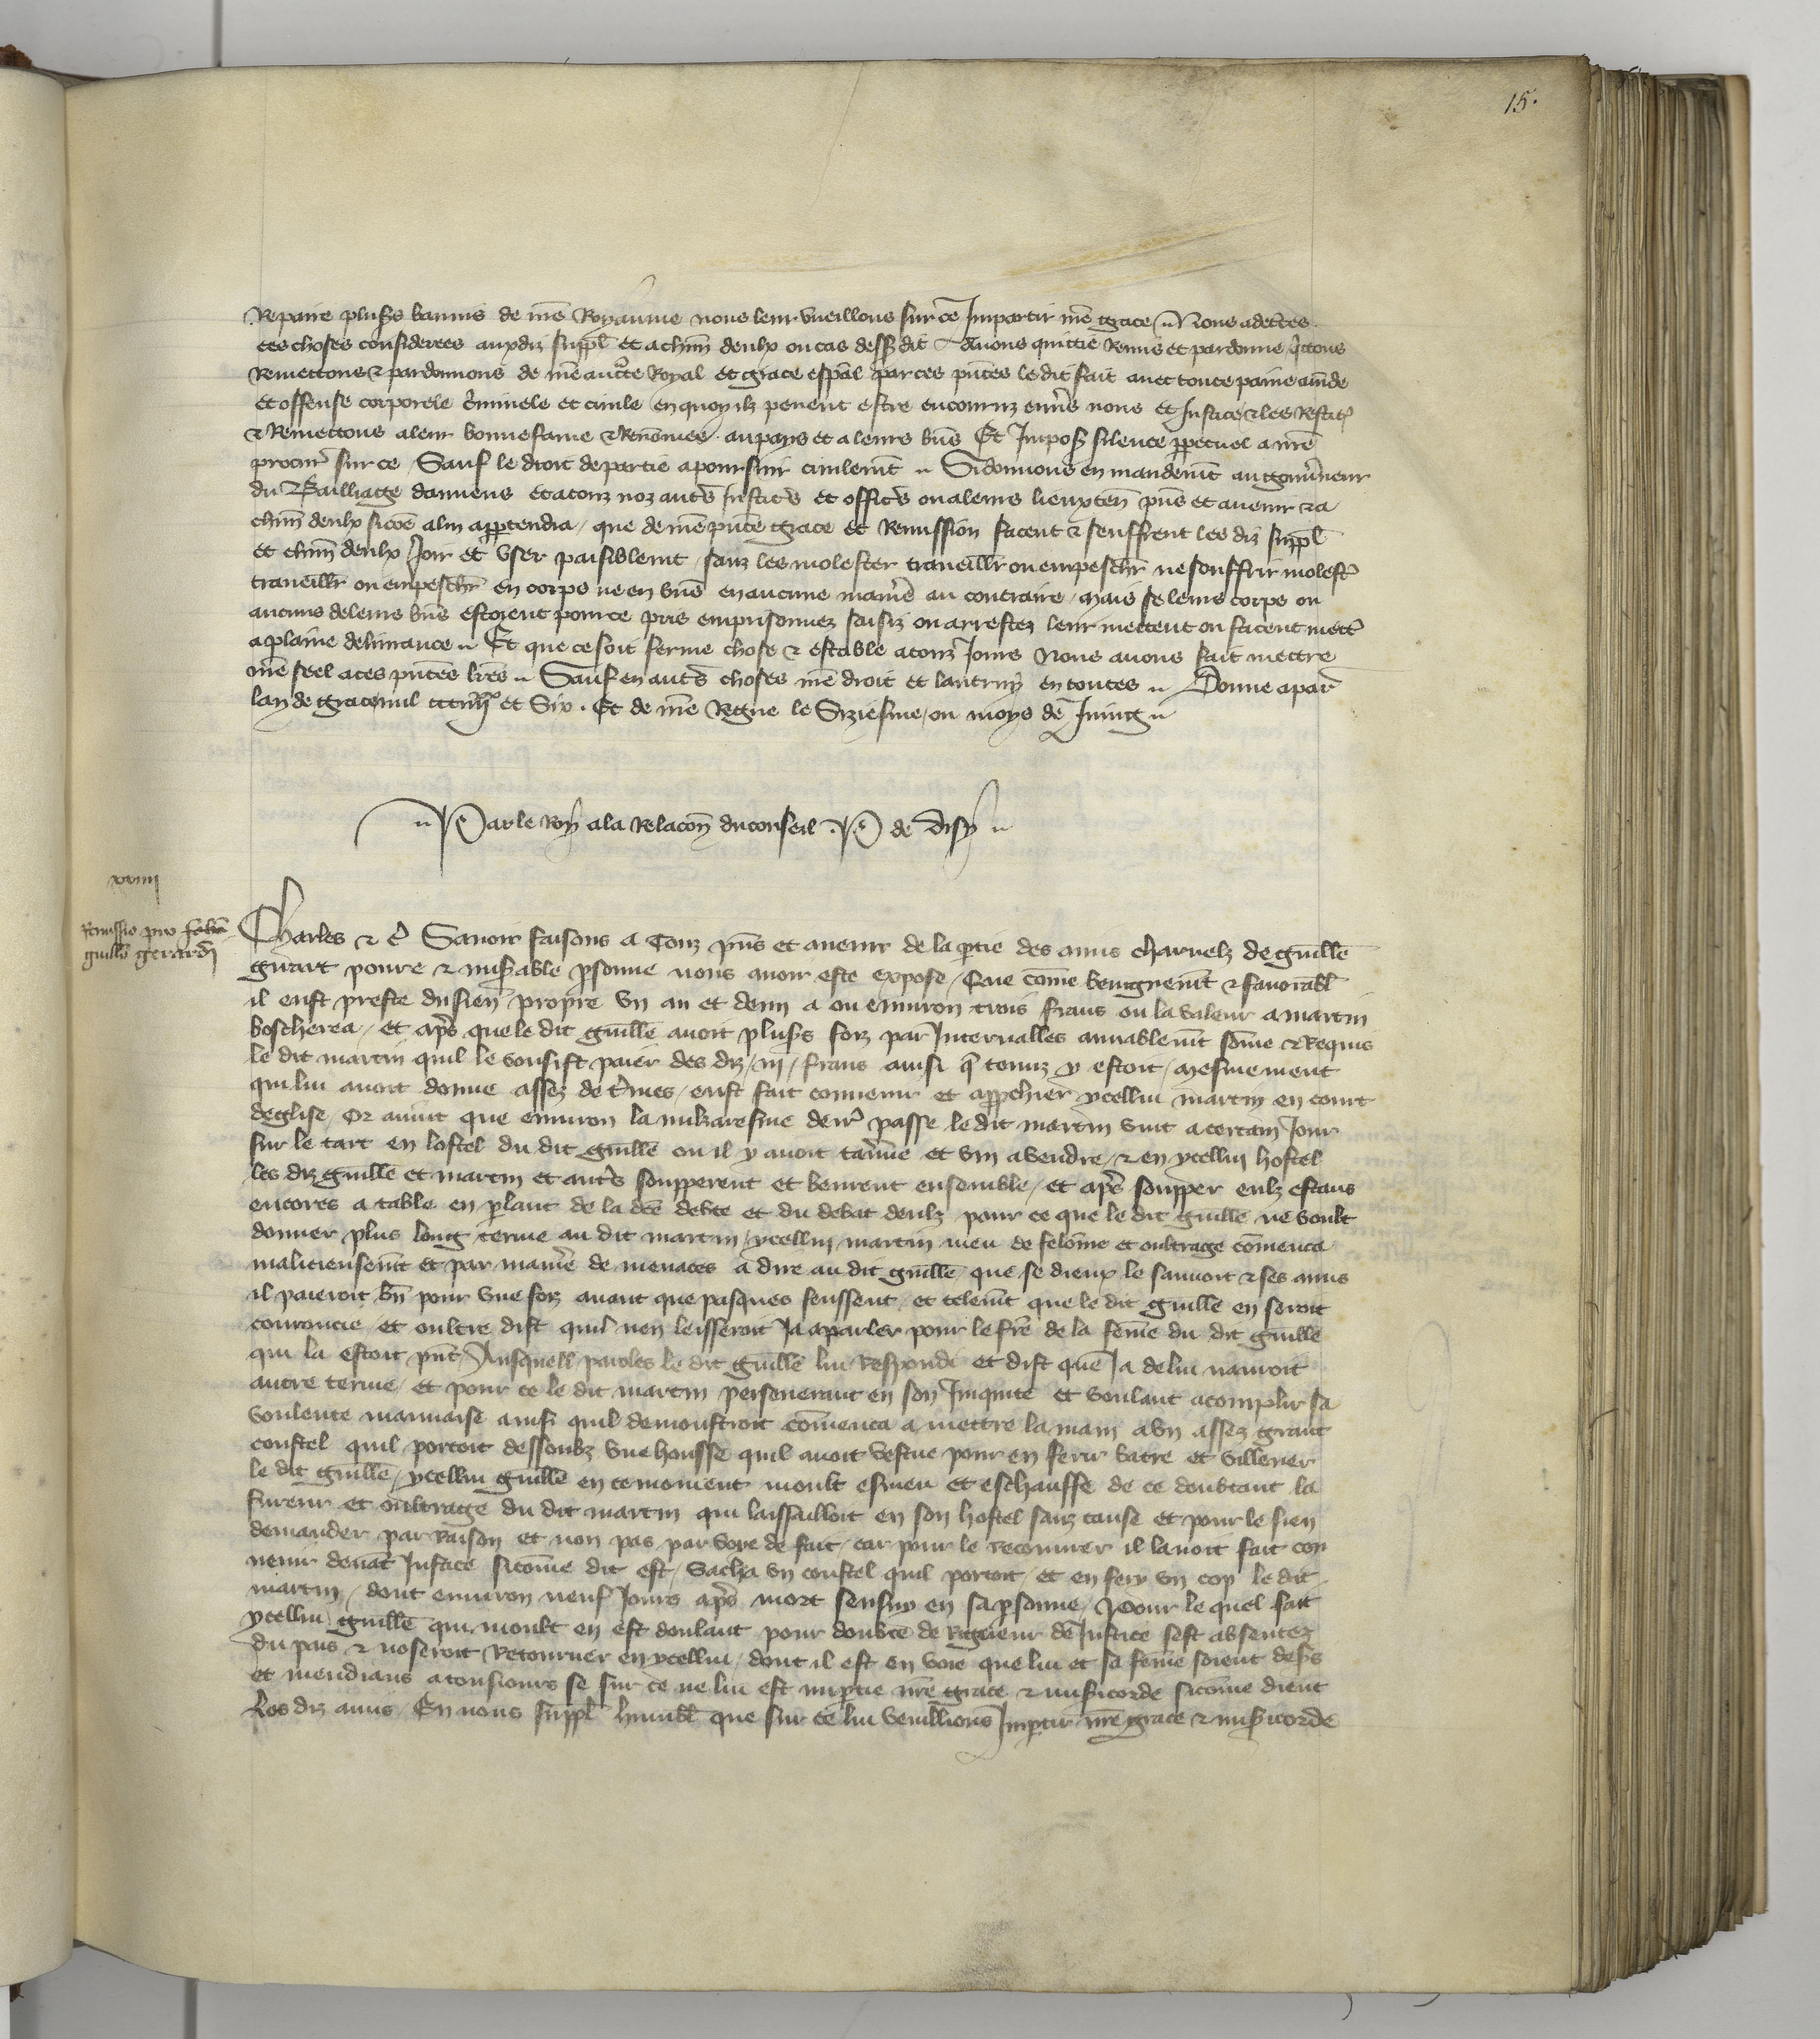 15.
Repaire plusrs bannis de nre Royaume nous leur vueillons sur ce Impartir nre grace Nous adecertes
ces choses considerees auxdiz suppl et a chun deulx ou cas dessusdit Avons quictie Remis et pardonne quictons
Remectons & pardonnons de nre aucte Royal et grace espal par ces pntes le dit fait avec toute paine amde
et offense corporele criminele et civile en quoy ilz pevent estre encouruz envrs nous et Justice & les Restit
& Remectons a leur bonne fame & Renomee au pays et a leurs bns Et Imposs silence ppetuel a nre
procur sur ce Sauf le droit de partie a poursuir civilemt Si donnons en mandemt au gouvrneur
du Bailliage damiens et a touz noz autrs Justics et offics ou a leurs lieuxten pns et avenir & a
chun deulx sicoe a lui appartendra que de nre pnte grace et Remission facent & seuffrent les diz suppl
et chun deulx Joir et user paisiblemt sanz les molester traveillr ou empeschr ne souffrir molest
traveillr ou empeschr en corps ne en bns en aucune manre au contraire mais se leurs corps ou
aucuns de leurs bns estoient pour ce pris emprisonnez saisiz ou arrestez leur mettent ou facent mett
a plaine delivrance Et que ce soit ferme chose & estable a touz Jours Nous avons fait mettre
nre seel a ces pntes lres Sauf en autrs choses nre droit et lautruy en toutes Donne a par
lan de grace mil ccc iiiixx et Six. Et de nre Regne le Siziesme ou moys de Juing
Par le Roy a la Relacon du conseil P de Disy
xxiiii
Remissio pro
guillo gerardi
Charles & c Savoir faisons a Touz pns et avenir de la ptie des amis charnelz de guille
girart povre & misable psonne nous avoir este expose Que come benignemt & favorabl
il eust preste du sien propre un an et demi a ou environ trois frans ou la valeur a martin
boscherea et aps que le dit guille avoit plusrs foiz par Intervalles amiablemt some & Requis
le dit martin quil le vousist paier des diz iii frans ainsi q tenuz y estoit mesmement
qui lui avoit donne assez de trmes eust fait convenir et approchier ycellui martin en court
deglise Or avint que environ la mikaresme derr passe le dit martin vint a certain Jour
sur le tart en lostel du dit guille ou il y avoit tavrne et vin a vendre & en ycellui hostel
les diz guille et martin et autrs soupperent et beurent ensemble et aprs soupper eulz estans
encores a table en plant de la dce debte et du debat deulz pour ce que le dit guille ne voult
donner plus long terme au dit martin ycellui martin meu de felonie et oultrage comenca
malicieusemt et par manre de menaces a dire au dit guille que se dieux le sauvoit & ses amis
il paieroit bn pour une foiz avant que pasques feussent et telemt que le dit guille en seroit
courroucie et oultre dist quil nen lesseroit Ja a parler pour le fre de la feme du dit guille
qui la estoit pnt Ausquell paroles le dit guille lui Respondi et dist que Ja de lui nauroit
autre terme et pour ce le dit martin perseverant en son Iniquite et voulant acomplir sa
voulente mauvaise ainsi quil demonstroit comenca a mettre la main a un assez grant
coustel quil portoit dessoubz une housse quil avoit vestue pour en ferir batre et villener
le dit guille ycellui guille en ce moment moult esmeu et eschauffe de ce doubtant la
fureur et oultrage du dit martin qui lassailloit en son hostel sanz cause et pour le sien
demander par Raison et non pas par voye de fait car pour le recouvrer il lavoit fait con
venir devat Justice sicome dit est Sacha un coustel quil portoit et en fery un cop le dit
martin dont environ neuf Jours aprs mort sensuy en sa psonne Pour le quel fait
ycellui guille qui moult en est doulant pour doubte de Rigueur de Justice sest absentez
du pais & noseroit Retourner en ycellui dont il est en voie que lui et sa feme soient desrs
et mendians a tousjours se sur ce ne lui est imptie nre grace & misicorde sicome dient
Les diz amis En nous suppl humbl que sur ce lui veuillions Impartir nre grace & misicorde